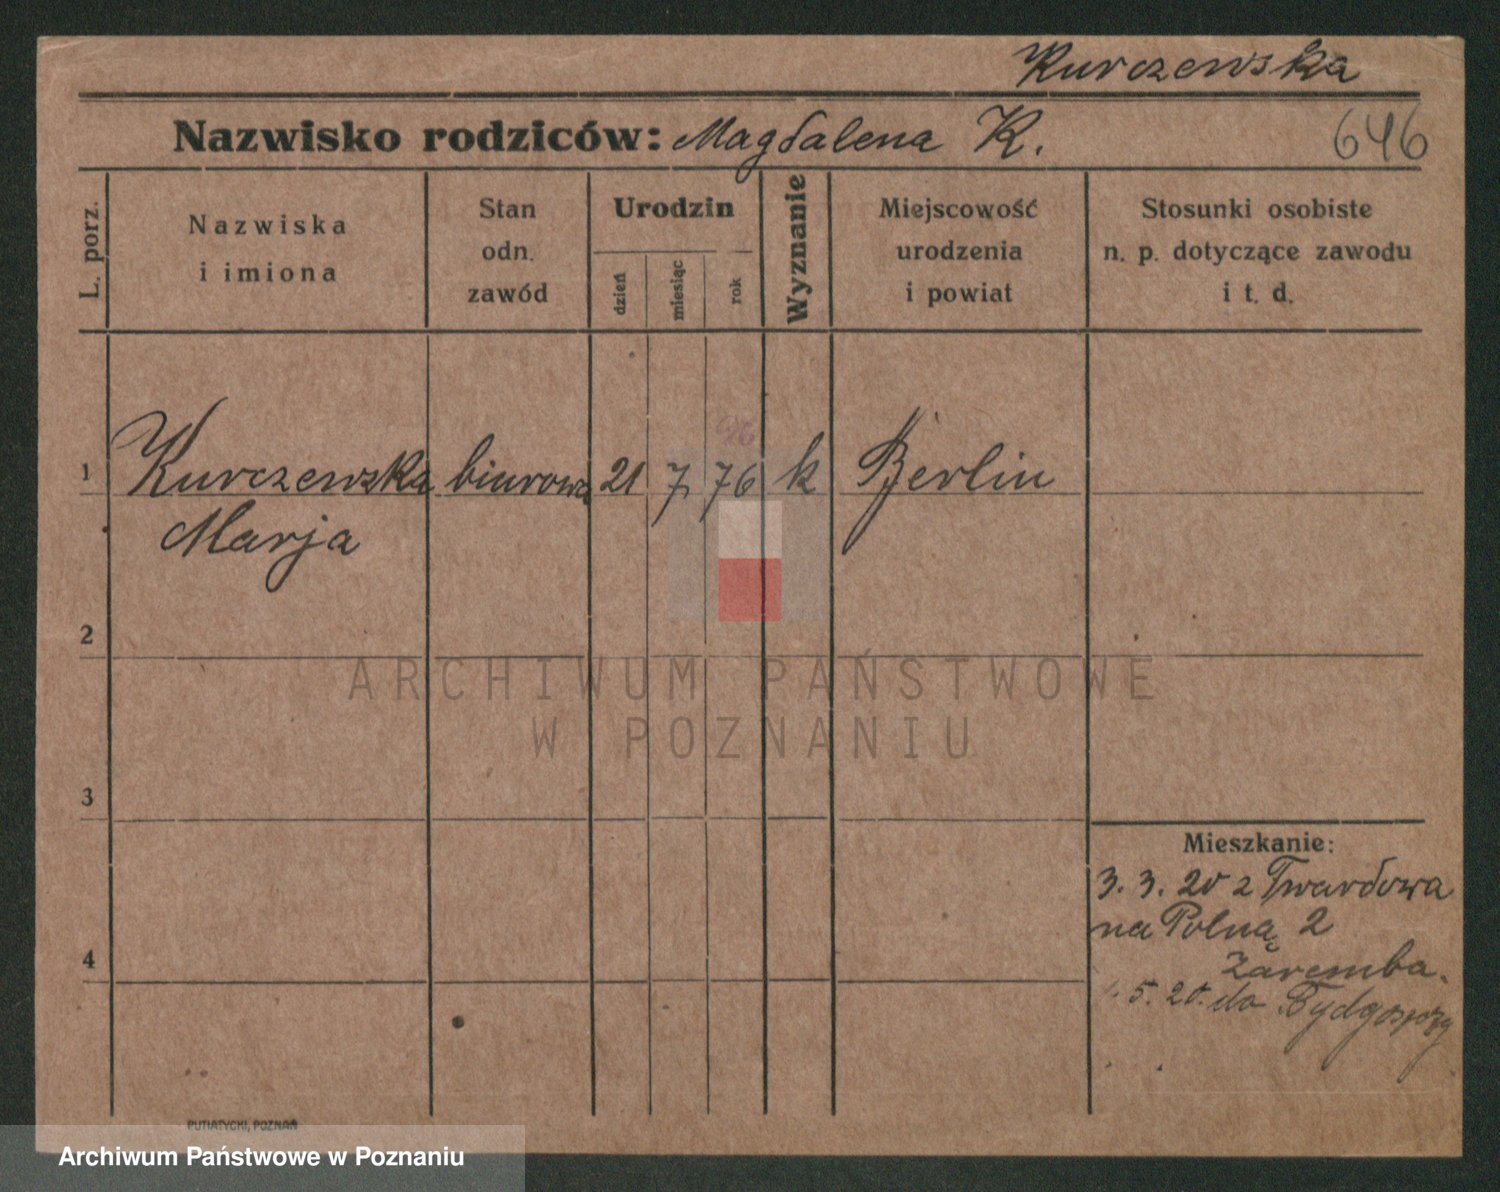 Kurczewska
Nazwisko rodziców: Magdalena K.
646
L. porz.
Nazwiska
i imiona
Stan
odn.
zawód
Urodzin
dzień
miesiąc
rok
Wyznanie
Miejscowość
urodzenia
i powiat
Stosunki osobiste
n. p. dotyczące zawodu
i t. d.
1 Kurczewska biurowa 21 7 76 k Berlin
Marja
2
3
4
Mieszkanie:
3. 3. 20 z Twardowa
na Polną 2
Zaremba.
5. 20. do Bydgoszczy
ARCHIWUM PAŃSTWOWE
W POZNANIU
PUTIATYCKI, POZNAŃ
Archiwum Państwowe w Poznaniu